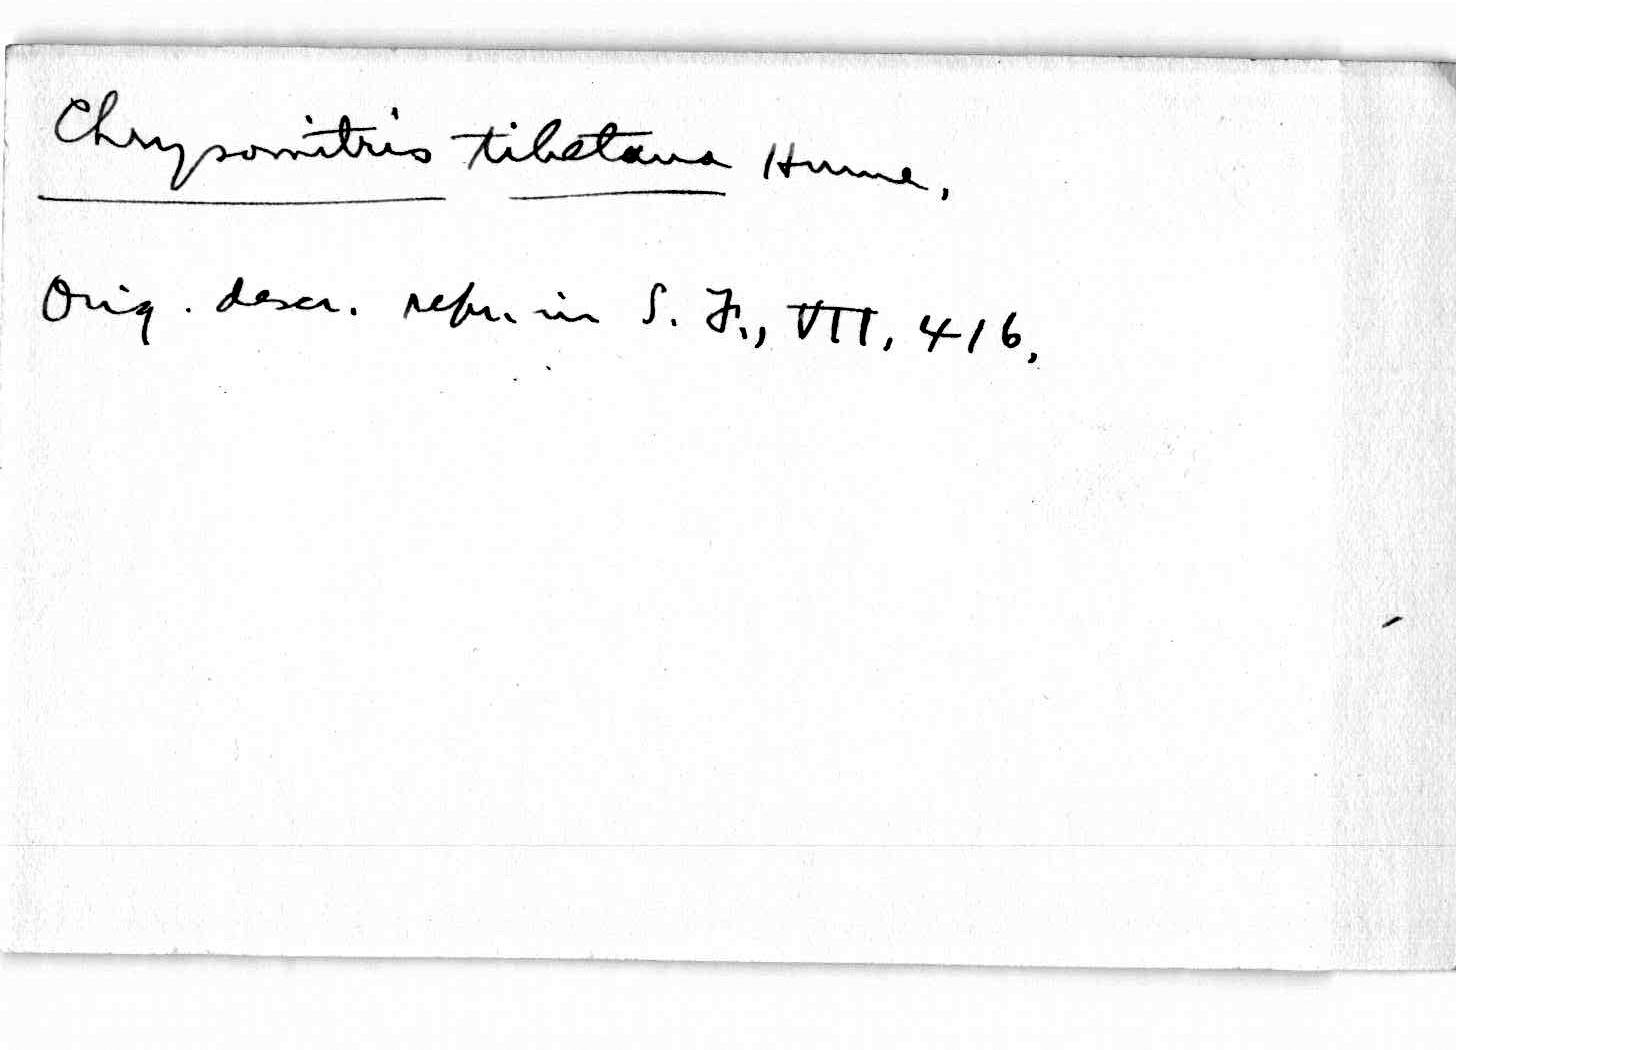 Chrysomitris tibetana Hume,
Orig. descr. repr. in S. F., VII, 416,